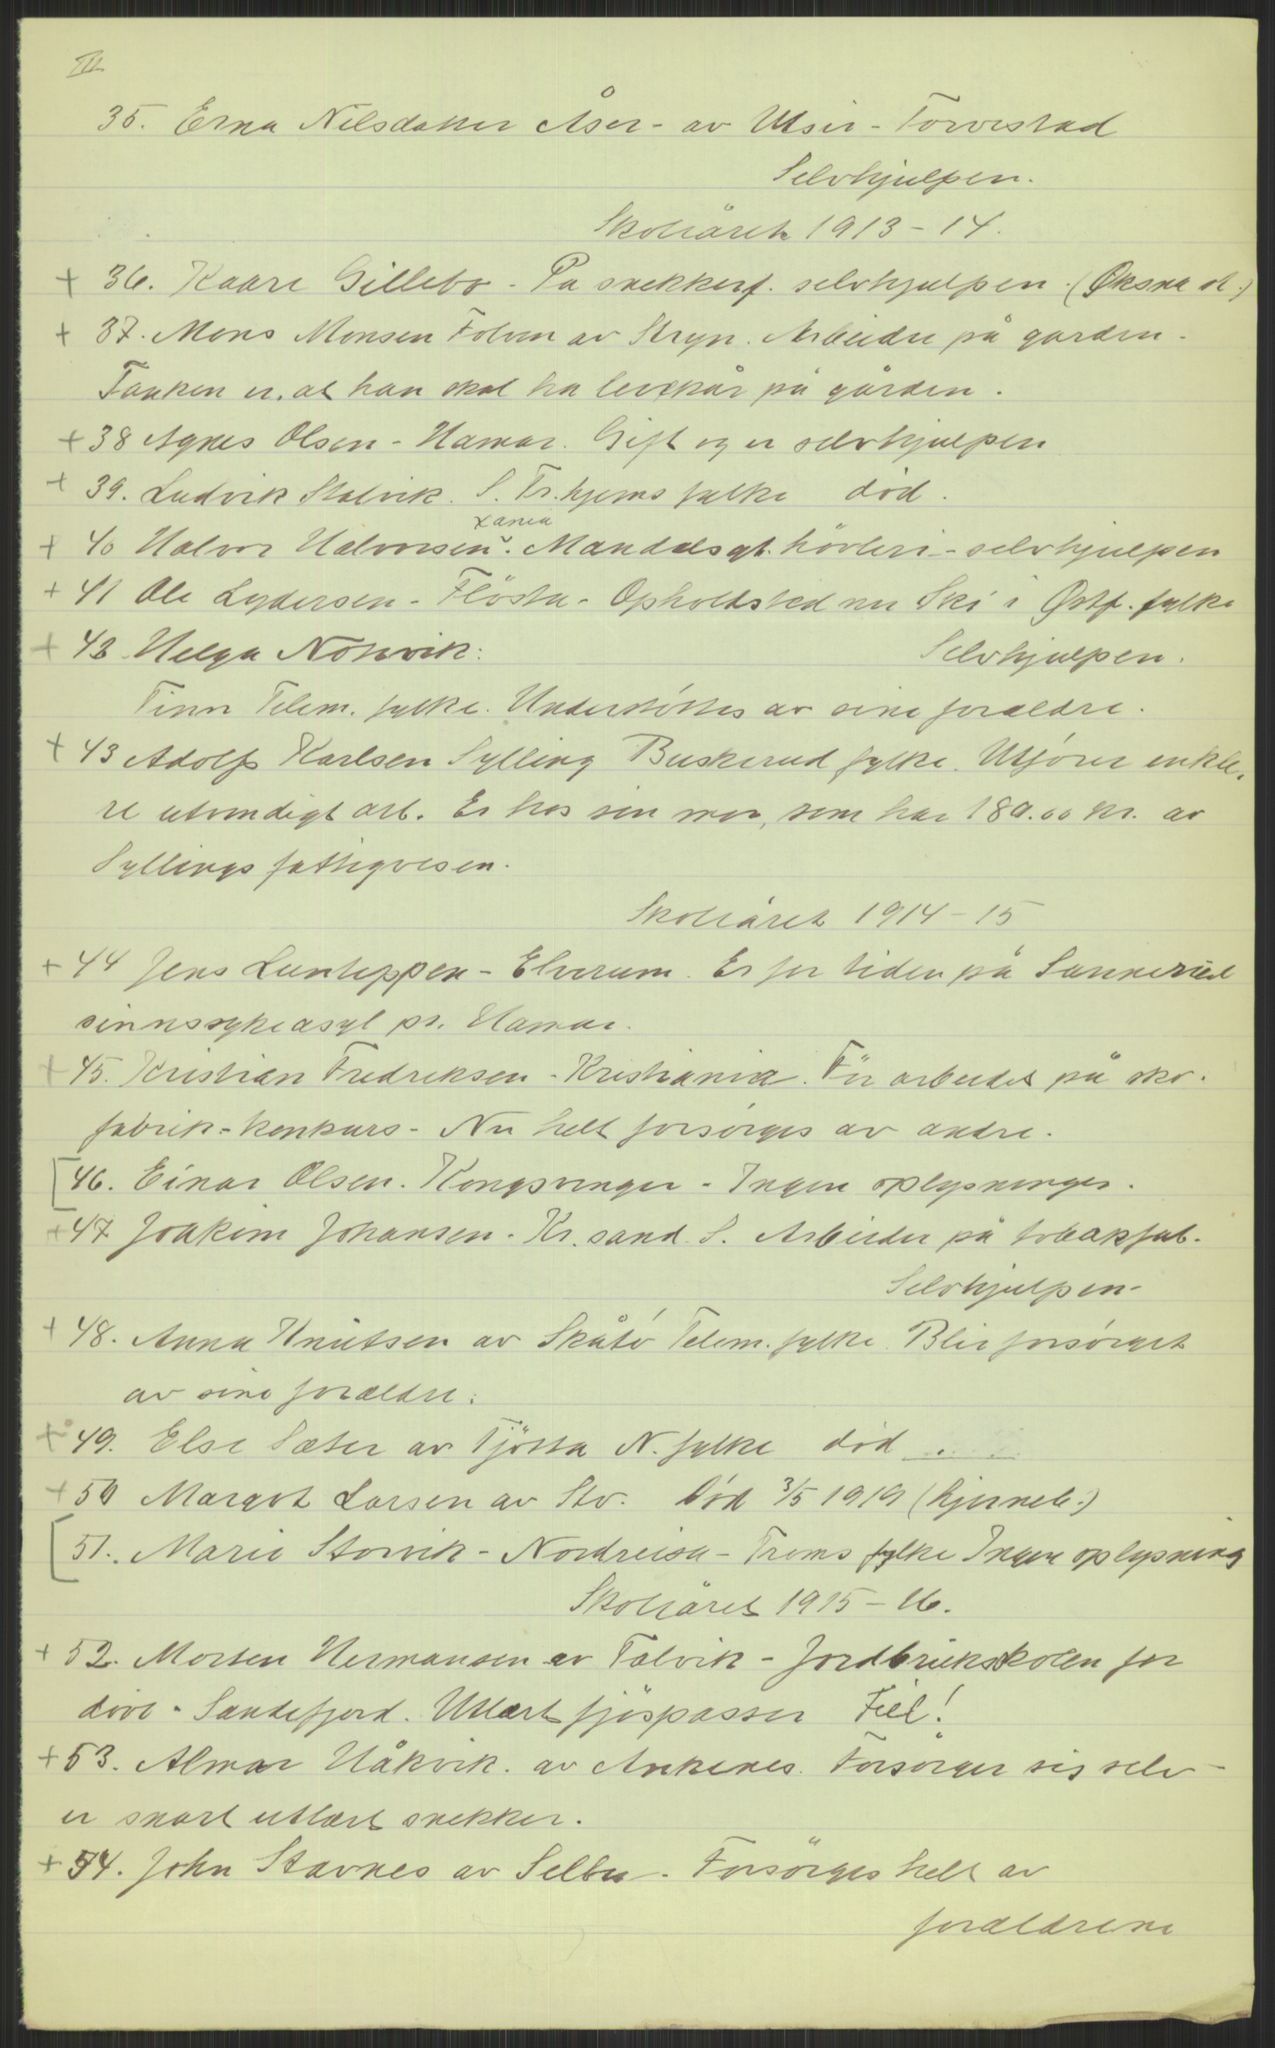 III
35. Erna Nilsdatter Åser - av Utsir - Torvestad
Selvhjulpen.
Skoleåret 1913 - 14.
+ 36. Kaare Gillebo - Pa snekkerf. selvhjulpen. (Øksna st.)
+ 37. Mons Monsen Folven av Stryn. Arbeider på garden.
Tanken er, at han skal ha levekår på gården.
+ 38 Agnes Olsen - Hamar. Gift og er selvhjulpen
+ 39. Ludvik Stalvik. S. Tr.hjems fylke død.
xania
+ 40 Halvor Halvorsen. Mandalsgt. høvleri - selvhjulpen
+ 41 Ole Lydersen - Flösta - Opholdsted nu Ski i Østf. fylke
+ 42 Helga Nossvik: Selvhjulpen.
Tinn Telem. fylke. Understöttes av sine foraeldre.
+ 43 Adolf Karlsen Sylling Buskerud fylke. Utfører enkle-
re utvendigt arb. Er hos sin mor, som har 180.00 kr. av
Syllings fattigvesen.
Skoleåret 1914 - 15
+ 44 Jens Lunteppen - Elverum. Er for tiden på Sanderud
sinnssykeasyl pr. Hamar.
+ 45. Kristian Fredriksen - Kristiania. Før arbeidet på sko-
fabrik - konkurs - Nu helt forsørges av andre.
[46. Einar Olsen. Kongsvinger - Ingen oplysninger.
+ 47 Joakim Johansen. Kr.sand. S. Arbeider på tobakfab.
Selvhjulpen -
+ 48. Anna Knutsen av Skåtö Telem. fylke. Blir forsørget
av sine foraeldre.
+ 49. Else Sæter av Tjötta N. fylke død
+ 50 Margot Larsen av Stv. Død 3/5 1919 (hjerneb.)
[51. Marie Storvik - Nordreisa - Troms fylke Ingen oplysning
Skoleåret 1915 - 16.
+ 52. Morten Hermansen av Talvik - Jordbrukskolen for
døve - Sandefjord. Utlært fjøspasser Feil!
+ 53. Almar Håkvik. av Ankenes. Forsørger sig selv -
er snart utlært snekker.
+ 54. John Stavnes av Selbu - Forsörges helt av
foraeldrene